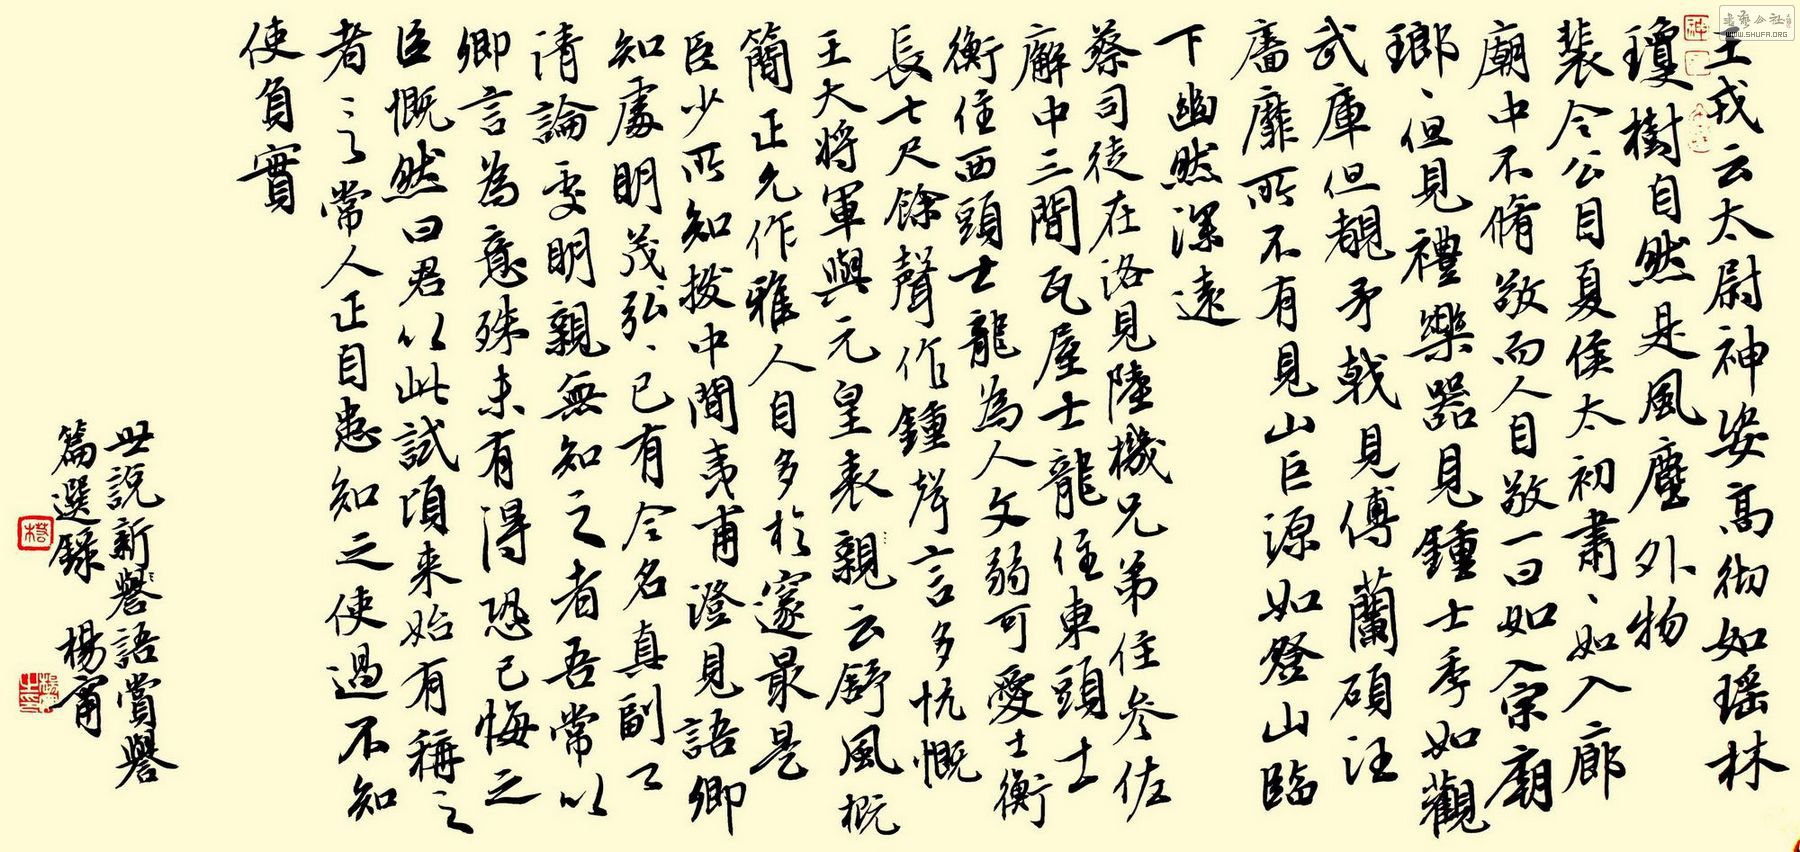 王戎云太尉神姿高彻如瑶林
瓊樹自然是風塵外物
裴令公目夏侯太初肅、如入廊
廟中不脩敬而人自敬一曰如入宗廟
瑯、但見禮樂器見鍾士季如觀
武庫但覩矛戟見傅蘭碩汪
廧靡所不有見山巨源如登山臨
下幽然深遠
蔡司徒在洛見陸機兄弟住參佐
廨中三間瓦屋士龍住東頭士
衡住西頭士龍為人文弱可愛士衡
長七尺餘聲作鍾聲言多忼慨
王大将軍與元皇表親云舒風概
簡正允作雅人自多於邃最是
臣少所知拔中間夷甫澄見語卿
知處明茂弘、已有令名真副
清論处明親無知之者吾常以
卿言為意殊未有得恐已悔之
臣慨然曰君以此試頃来始有稱之
者、言常人正自患知之使過不知
使負實
世說新譽語賞譽
篇選錄 楊甯
WWW.SHUFA.ORG